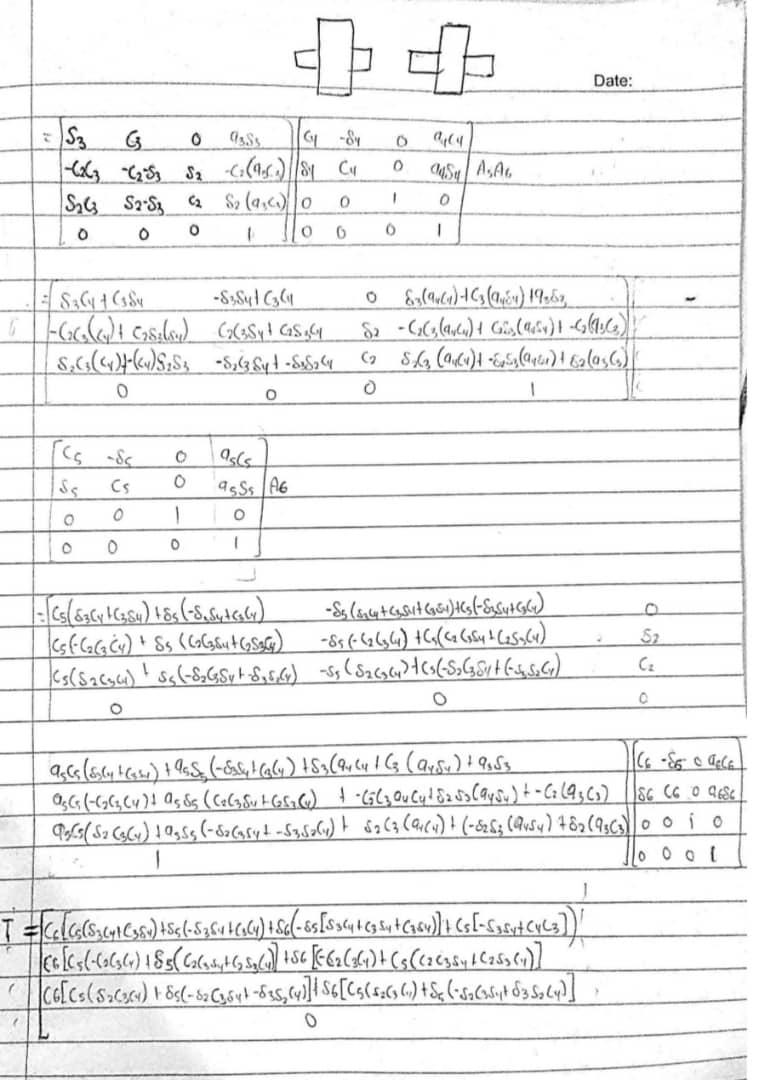 Date:
= S3 C3 0 a3S3 C4 -S4 0 a4C4
-C2C3 -C2-S3 S2 -C2(a3C3) S4 C4 0 a4S4 A5A6
S2C3 S2-S3 C2 S2(a3C3) 0 0 1 0
0 0 0 1 0 0 0 1
= S3C4+C3S4 -S3S4+C3C4 0 S3(a4C4)+C3(a4S4)+a3S3
-C2C3(C4)+C2S3(S4) C2C3S4+C2S3C4 S2 -C2C3(a4C4)+ (a4S4)+-C2(a3C3)
S2C3(C4)+-(C4)S2S3 -S2C3S4+-S3S2C4 C2 S2C3(a4C4)+-S2S3(a4S4)+S2(a3C3)
0 0 0 1
C5 -S5 0 a5C5
S5 C5 0 a5S5 A6
0 0 1 0
0 0 0 1
= C5(S3C4+C3S4)+S5(-S3S4+C3C4) -S5(S3C4+C3S4+C3S4)+C5(-S3S4+C3C4) 0
C5(-C2C3C4)+S5(C2C3S4+C2S3C4) -S5(-C2C3C4)+C5(C2C3S4+C2S3C4) S2
C5(S2C3C4)+S5(-S2C3S4+-S3S2C4) -S5(S2C3C4)+C5(-S2C3S4+(-S3S2C4) C2
0 0 0
a5C5(S3C4+C3S4)+a5S5(-S3S4+C3C4)+S3(a4C4+C3(a4S4)+a3S3 C6 -S6 0 a6C6
a5C5(-C2C3C4)+a5S5(C2C3S4+C2S3C4) +-C2C3a4C4+S2S3(a4S4)+-C2(a3C3) S6 C6 0 a6S6
a5C5(S2C3C4)+a5S5(-S2C3S4+-S3S2C4)+S2C3(a4C4)+(-S2S3(a4S4)+S2(a3C3) 0 0 1 0
1 0 0 0 1
T = C6[C5(S3C4+C3S4)+S5(-S3S4+C3C4)+S6(-S5[S3C4+C3S4+C3S4)]+C5[-S3S4+C4C3])
C6[C5(-C2C3C4)+S5(C2C3S4+C2S3C4]+S6[-C2C3C4)+C5(C2C3S4+C2S3C4)]
C6[C5(S2C3C4)+S5(-S2C3S4+-S3S2C4)]+S6[C5(S2C3C4)+S5(-S2C3S4+S3S2C4)]
0